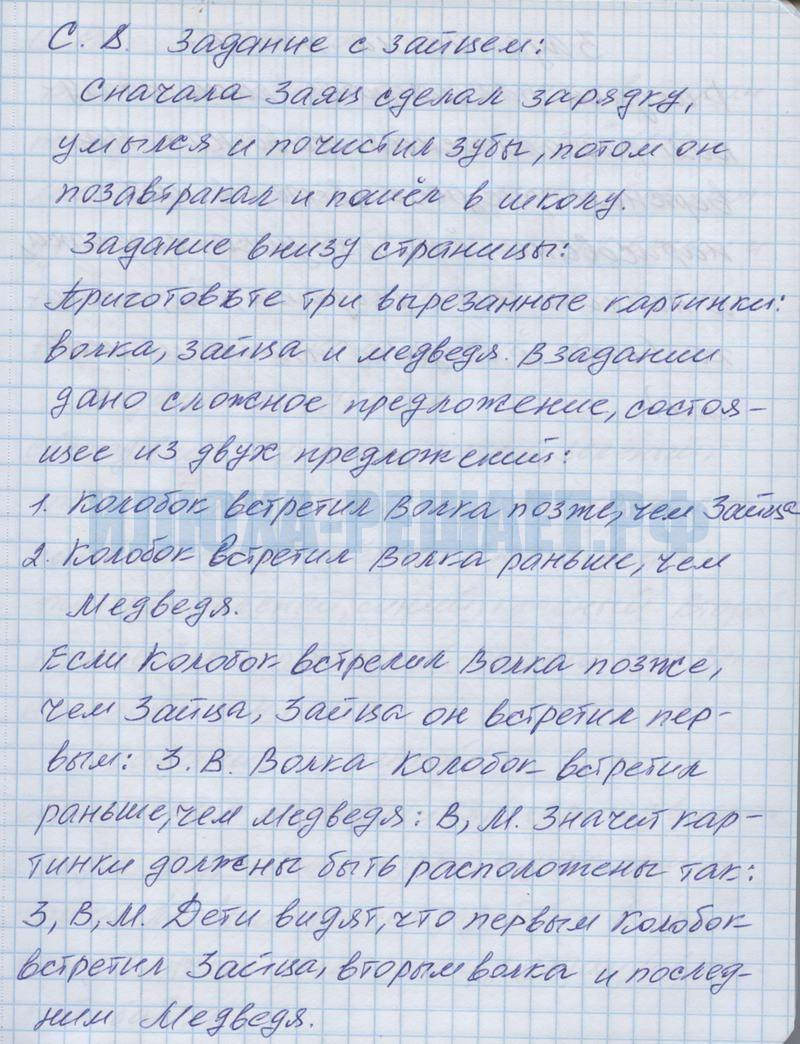 С. 8. Задание с зайцем:
Сначала Заяц сделал зарядку,
умылся и почистил зубы, потом он
позавтракал и пошёл в школу.
Задание внизу страницы:
Приготовьте три вырезанные картинки:
волка, зайца и медведя. В задании
дано сложное предложение, состоя-
щее из двух предложений:
1. Колобок встретил Волка позже, чем Зайца
ШКОЛА-РЕШАЕТ.РФ
2. Колобок встретил Волка раньше, чем
Медведя.
Если Колобок встретил Волка позже,
чем Зайца, Зайца он встретил пер-
вым: З. В. Волка Колобок встретил
раньше, чем Медведя: В, М. Значит кар-
тинки должны быть расположены так:
З, В, М. Дети видят, что первым Колобок
встретил Зайца, вторым волка и послед-
ним Медведя.